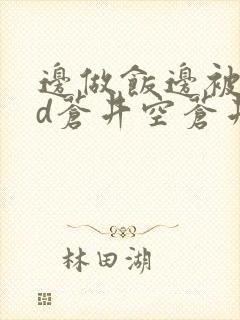 邊做飯邊被
d蒼井空蒼井
林田湖